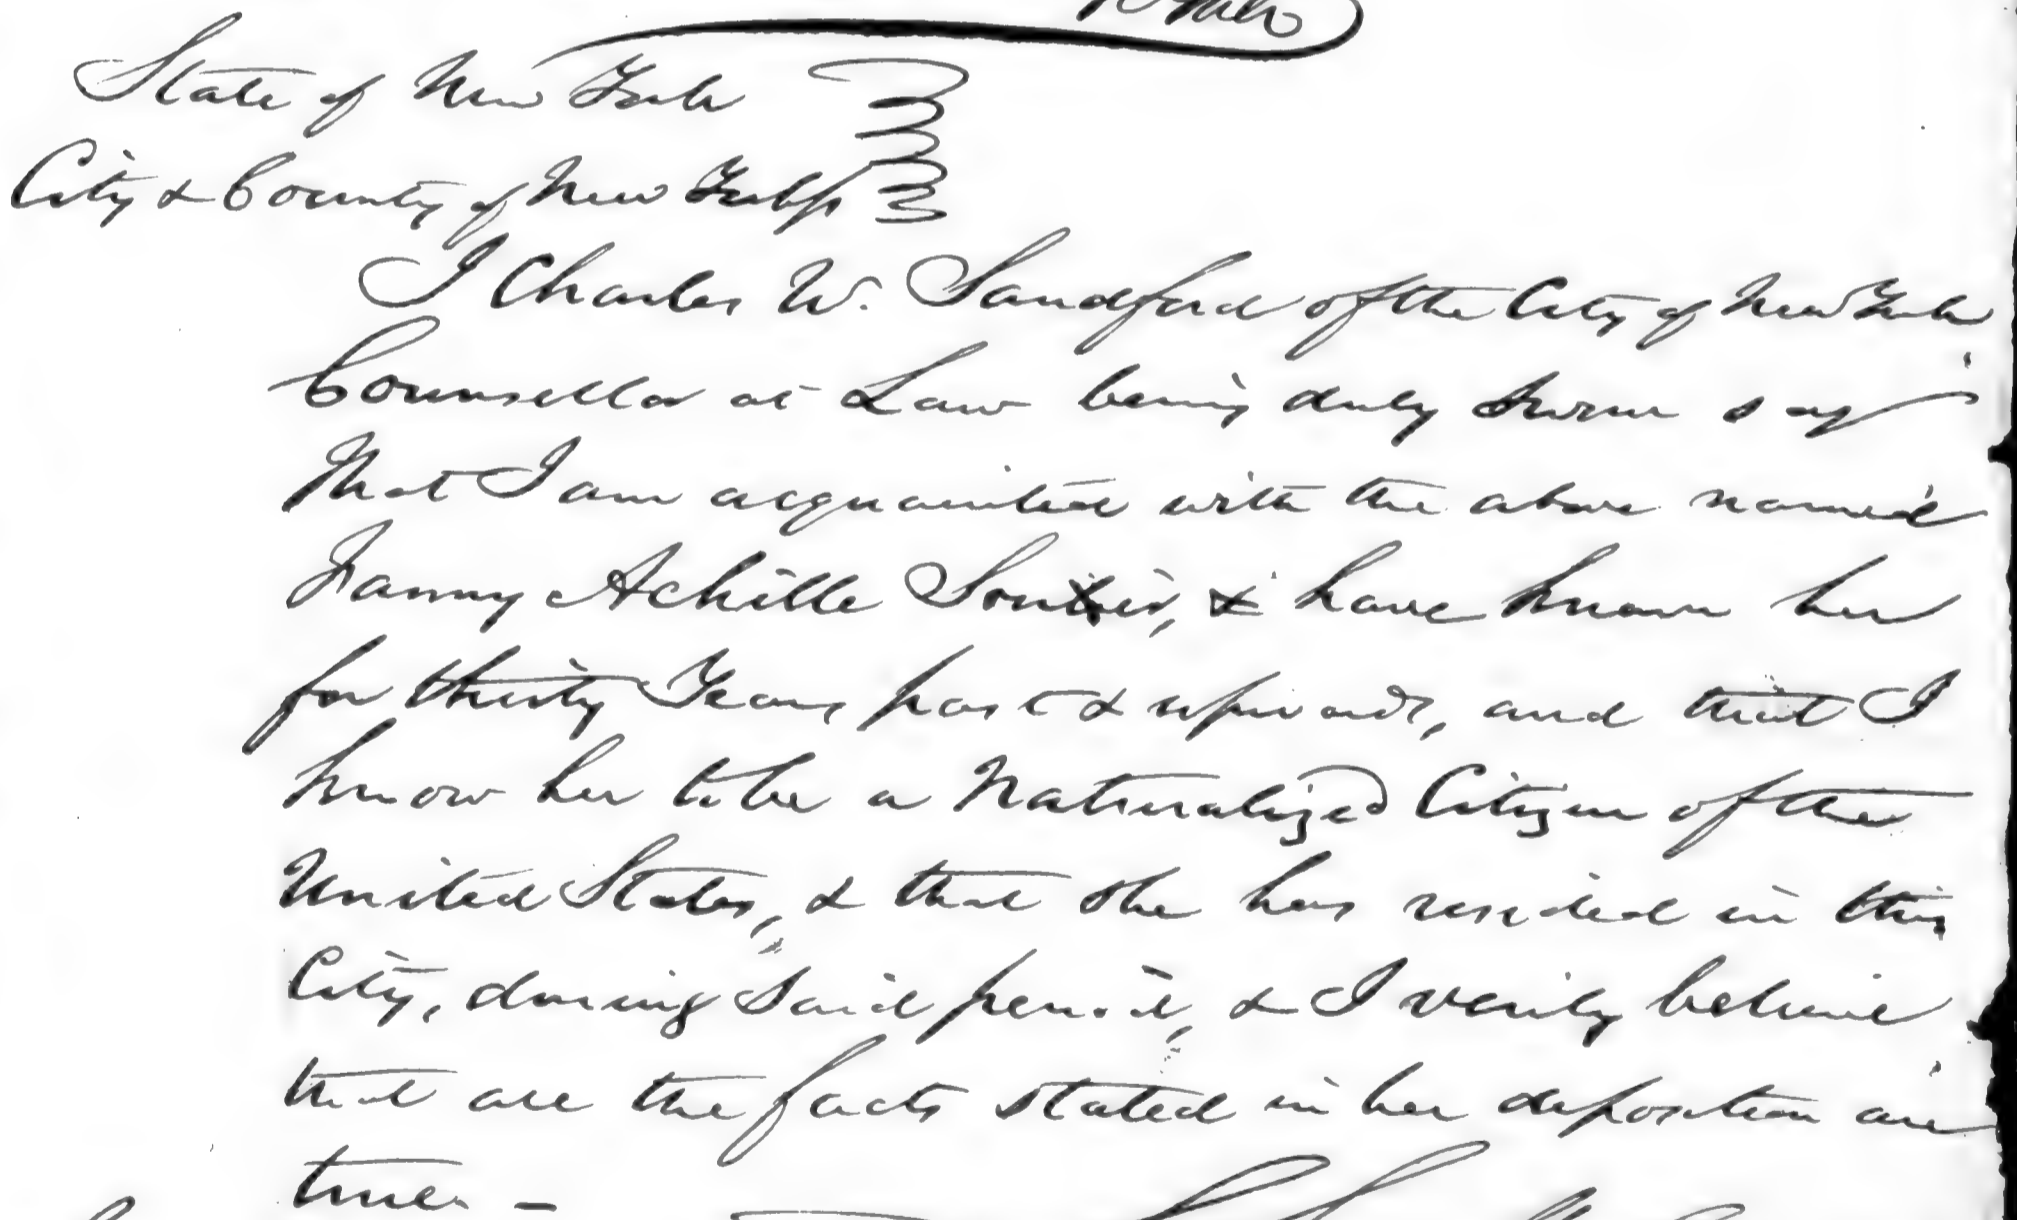 State of New York
City & County of New York ss
I Charles W. Sandford of the City of New York
Counsellor at Law being duly sworn say
That I am acquainted with the above named
Fanny Achille & have known her
for thirty Years past & upwards, and that I
know her to be a Naturalized Citizen of the
United States, & that she has resided in this
City, during said period, & I verily believe
that all the facts stated in her deposition are
true. —